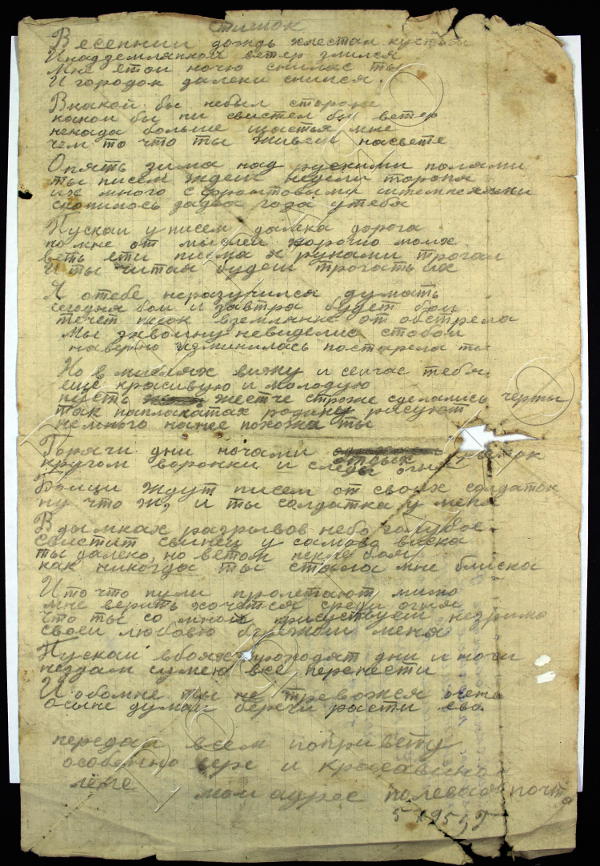 стишок
Весенний дождь хлестал кусты
Инадземлянкой ветер злился
Мне етой ночю снилас ты
И городок далеки снился.
Внакой бы небыл стороне
какой бы ни свистел бы ветер
некада больше щастья мне
чем то что ты живеш насвете
Опять зима над рускими полями
ты писем ждеш недели тороня
их много с фронтовыми штемпелями
скопилось задва года утебя
Пускай у писем далка дорога
комне от мыслей хороню моих
веть ети писма я руками трогал
И ты читая будеш трогать их
Я отебе неразучился думать
сегодня бой и завтра будет бой
течет песок вземлянке от обстрела
Мы завойну невиделис стобой
наверно изминилась постарела ти
Но в мислях вижу и сейчас тебя
еще красивую и молодую
пусть жестче строже сделались черты
так наплакатах родину рисуют
немного нанее похожа ты
Горячи дни ночами
кругом воронки и следы
Бойци ждут писем от своих солдаток
ну что ж, и ты солдатка у меня
Вдымках разрывов небо голубое
свистит свинец у самова виска
ты далеко, но ветом пекле боя
как никогда ты стала мне блиска
И то что пули пролетают мимо
мне верить хочется среди огня
что ты со мной присуствуеш незримо
своей любовю меня
Пускай вбоях проходят дни и ночи
нездам сумею все перенести
И обомне ты не тревожся очень
осыне думай береги расти ево
передай всем попривету
особенно вере и красавицой
лене мой адрес полевая почта